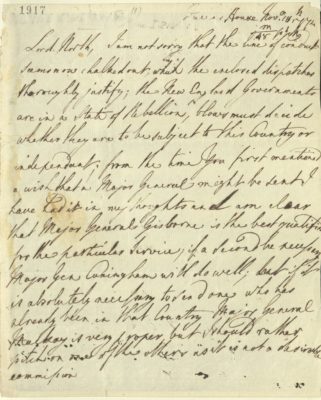 1917
(1)
Queens House Nov. 18th 1774
Lord North, I am not sorry that the line of conduct
seems now chalked out which the enclosed dispatches
thoroughly justify; the New England Governments
are in a State of Rebellion, blows must decide
whether they are to be subject to this Country or
independant; from the time You first mentioned
a wish that a Major General might be sent I
have had it in my thoughts and am clear
that Major General Gisborne is the best qualified
for the particular service, if a second be necessary
Major Gen. Cuninghame will do well; but if it
is absolutely necessary to send one who has
already been in that Country Major General
is very proper, but I should rather
pitch on one of the others as it is not a desirable
commission